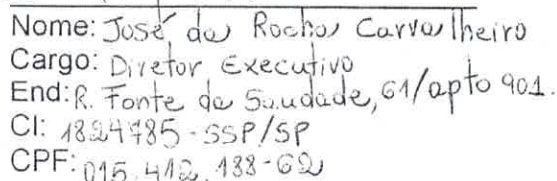 Nome: José da Rocha Carvalheiro
Cargo: Diretor Executivo
End: R. Fonte da Saudade, 61/apto 901.
CI: 1824785 - SSP/SP
CPF: 015.412.188-62